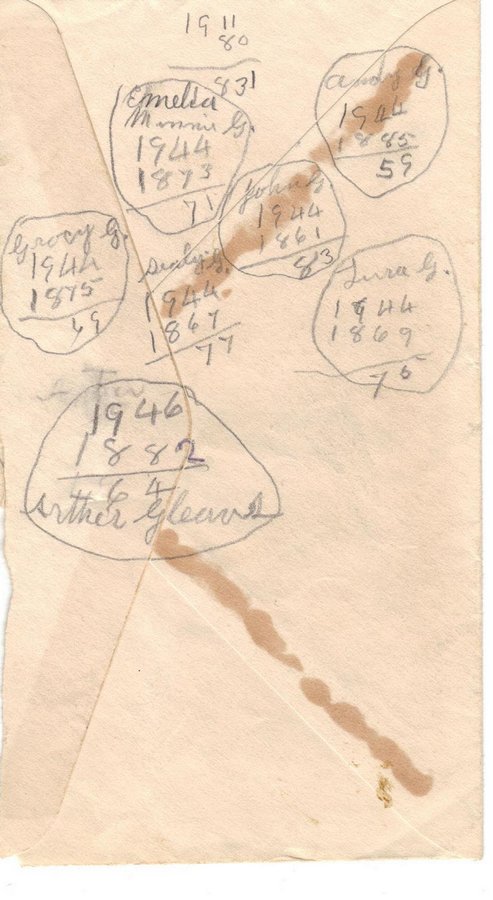 1911
80
831
Emelia
Minnie G.
1944
1873
71
Andy G.
1944
1885
59
John G
1944
1861
83
Gracy G.
1944
1875
69
G.
1944
1867
77
Lura G.
1944
1869
75
1946
1882
64
Arther Gleaves